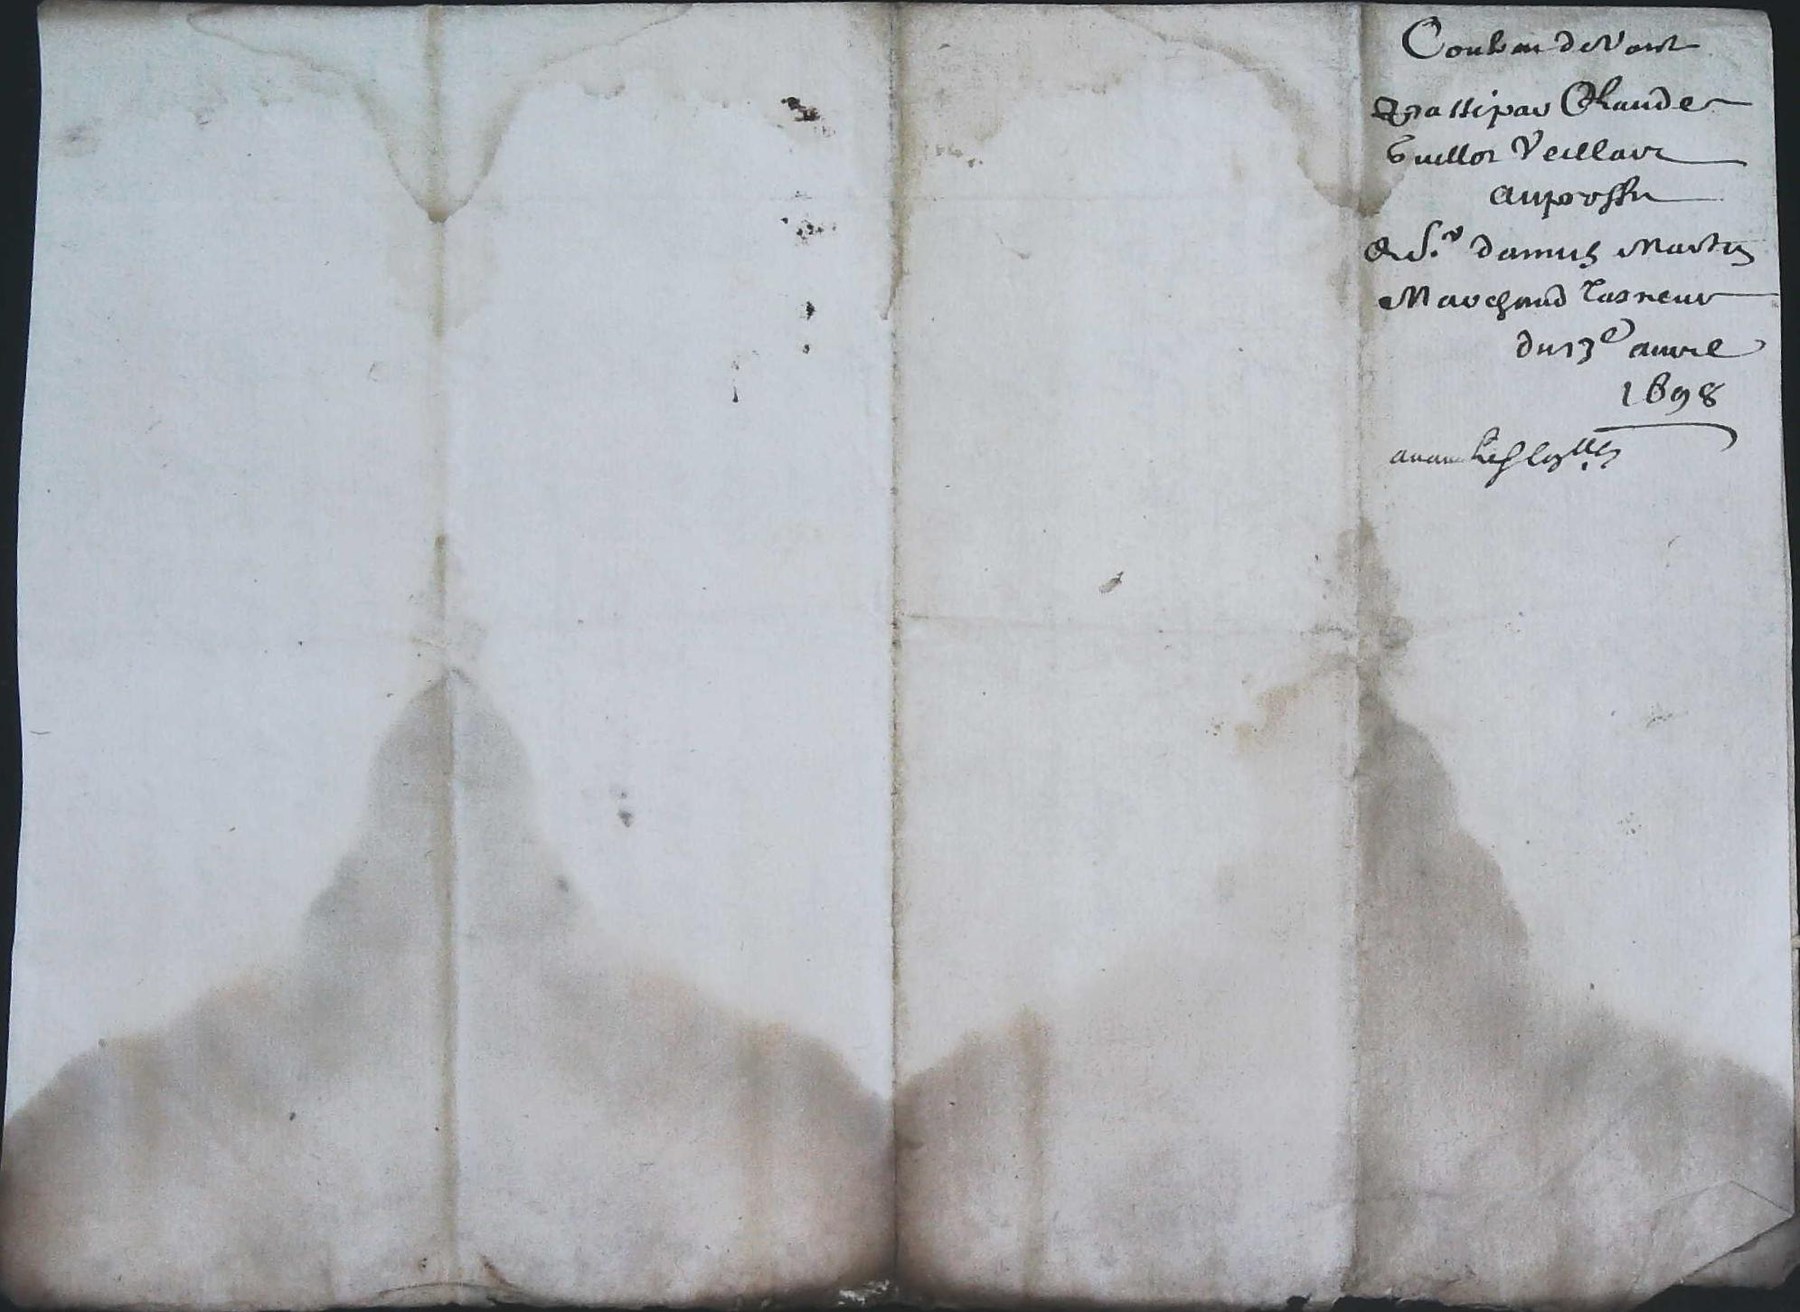 Contrat de Vante
passé par Claude
Guillot Veillard
au proffit
de Sr. Damien Martin
Marchand Tasneur
du 13e auvril
1698
avant